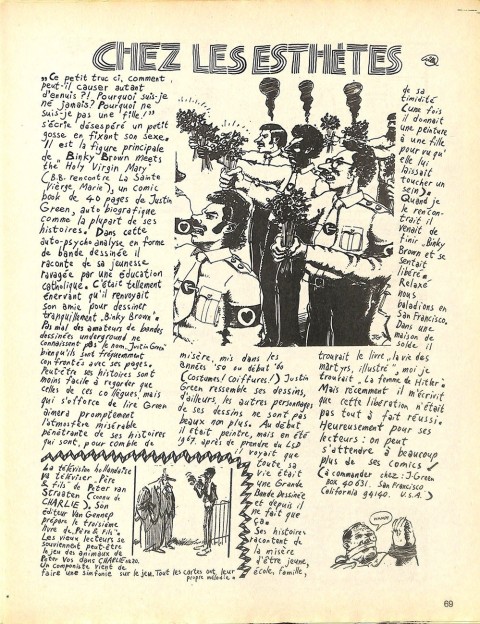 CHEZ LES ESTHÈTES
"Ce petit truc ci, comment
peut-il causer autant
d'ennuis ?! Pourquoi suis-je
né jamais? Pourquoi ne
suis-je pas une fille!"
s'écrie désespéré un petit
gosse en fixant son sexe.
Il est la figure principale
de "Binky Brown meets
the Holy Virgin Mary"
(B.B. rencontre La Sainte
Vierge Marie), un comic
book de 40 pages de Justin
Green, auto biografique
comme la plupart de ses
histoires. Dans cette
auto-psycho analyse en forme
de bande dessinée il
raconte de sa jeunesse
ravagée par une éducation
catholique. C'était tellement
énervant qu'il renvoyait
son amie pour dessiner
tranquillement "Binky Brown".
Pas mal des amateurs de bandes
dessinées underground ne
connaissent pas le nom Justin Green
bien qu'ils sont fréquemment
confrontés avec ses pages.
Peut-être ses histoires sont
moins facile à regarder que
celles de ces collègues, mais
qui s'efforce de lire Green
aimera promptement
l'atmosfère misérable
pénétrante de ses histoires
qui sont, pour comble de
misère, mis dans les
années '50 ou début '60
(Costumes! Coiffures!) Justin
Green ressemble ses dessins,
d'ailleurs, les autres personnages
de ses dessins ne sont pas
beaux non plus. Au début
il était peintre, mais en été
1967, après de prendre du LSD
il voyait que
toute sa
vie était
une Grande
Bande Dessinée
et depuis il
ne fait que
ça.
Ses histoires
racontent de
la misère
d'être jeune,
école, famille,
de sa
timidité
(une fois
il donnait
une peinture
à une fille
pourvu qu'
elle lui
laissait
toucher un
sein).
Quand je
le rencon-
trait il
venait de
finir "Binky
Brown et se
sentait
libéré".
Relaxé
nous
baladions en
San Francisco.
Dans une
maison de
solde il
trouvait le livre "la vie des
martyrs, illustré" moi je
trouvait "La femme de Hitler".
Mais récemment il m'écrivit
que cette libération n'était
pas tout à fait réussi.
Heureusement pour ses
lecteurs: on peut
s'attendre à beaucoup
plus de ses comics
(à commander chez: J-Green
Box 40631. San Francisco
California 94140. U.S.A.)
La télévision hollandaise
va téléviser "Père
& fils" de Peter van
Straaten (connu de
CHARLIE). Son
éditeur Van Gennep
prépare le troisième
livre de "Père & Fils".
Les vieux lecteurs se
souviennent peut-être
le jeu des animaux de
Peter Vos dans CHARLIE
Un componiste vient de
faire une simfonie sur le jeu. Tout les cartes ont leur
propre mélodie.
69